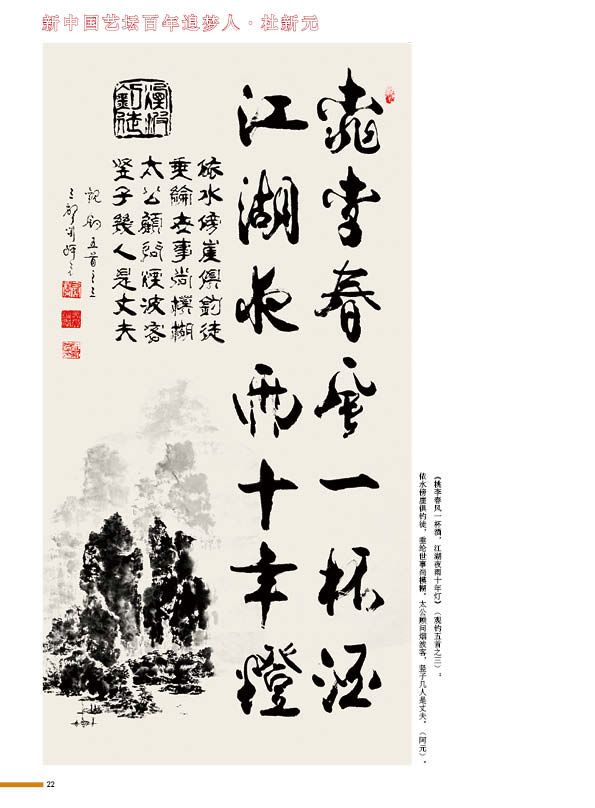 新中国艺坛百年追梦人·杜新元
桃李春风一杯酒
江湖夜雨十年燈
漫波釣徒
依水傍崖俱釣徒
垂綸世事尚模糊
太公顧問煙波客
竖子幾人是丈夫
觀釣五首之三
《桃李春风一杯酒，江湖夜雨十年灯》（观钓五首之三）。
依水傍崖俱钓徒，垂纶世事尚模糊。太公顾问烟波客，竖子几人是丈夫。（阿元）。
22